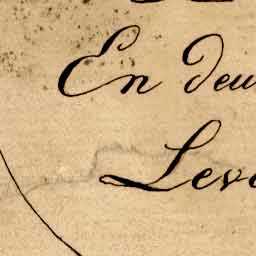 En deu
Leve